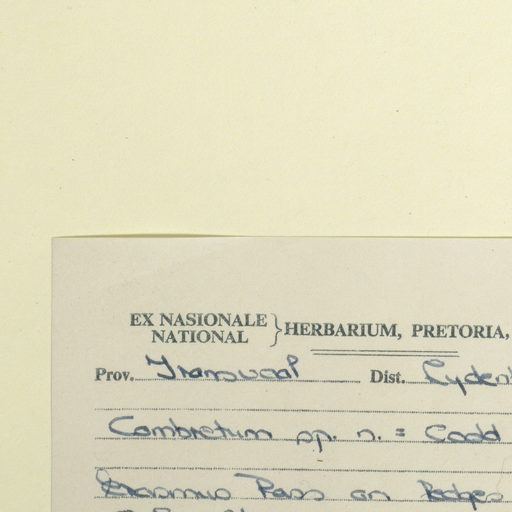 EX NASIONALE
NATIONAL } HERBARIUM, PRETORIA,
Prov. Transvaal Dist. Lyden
Combretum sp. n. = Codd
Erasmus Pass on